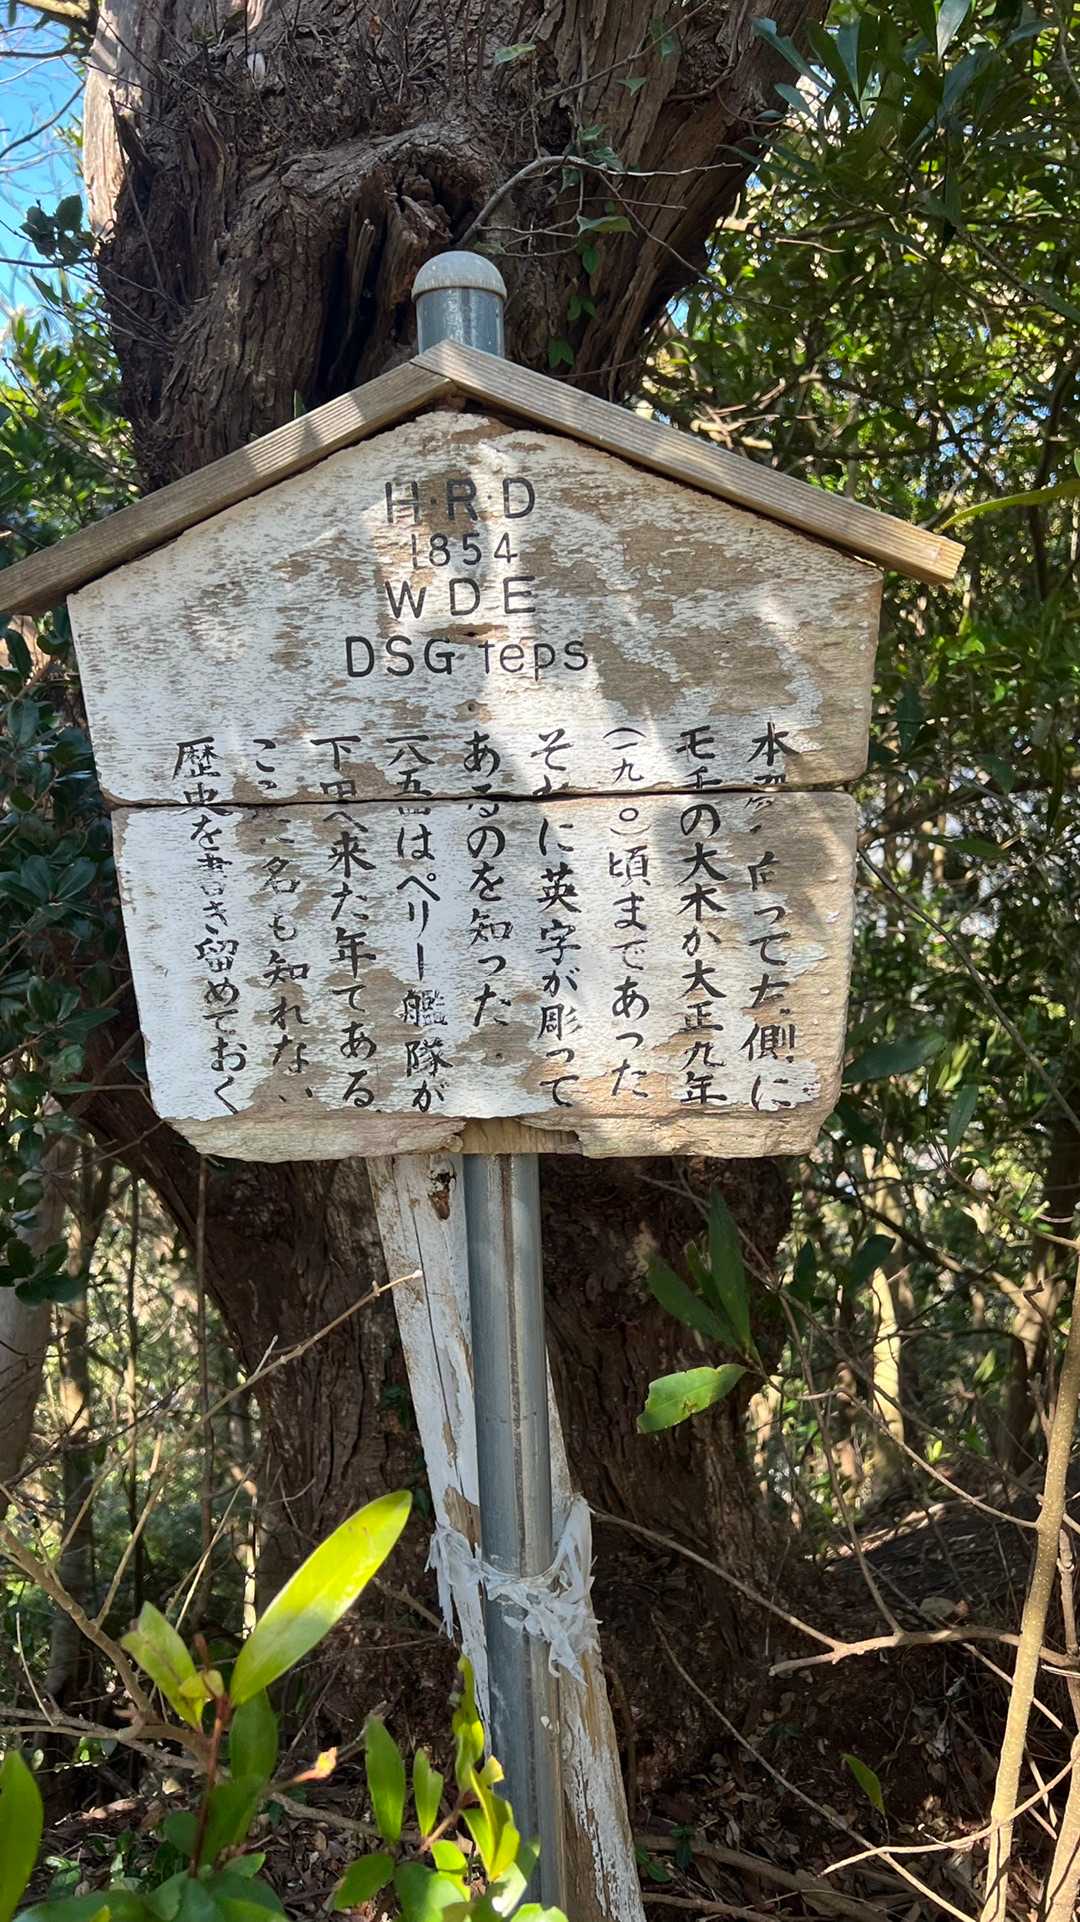 H·R·D
1854
WDE
DSG teps
本 向って左側に
モチの大木か大正九年
(一九二〇)頃まであった
それに英字が彫って
あるのを知った.
一八五四はペリー艦隊が
下田へ来た年てある
名も知れない
歴史を書き留めておく